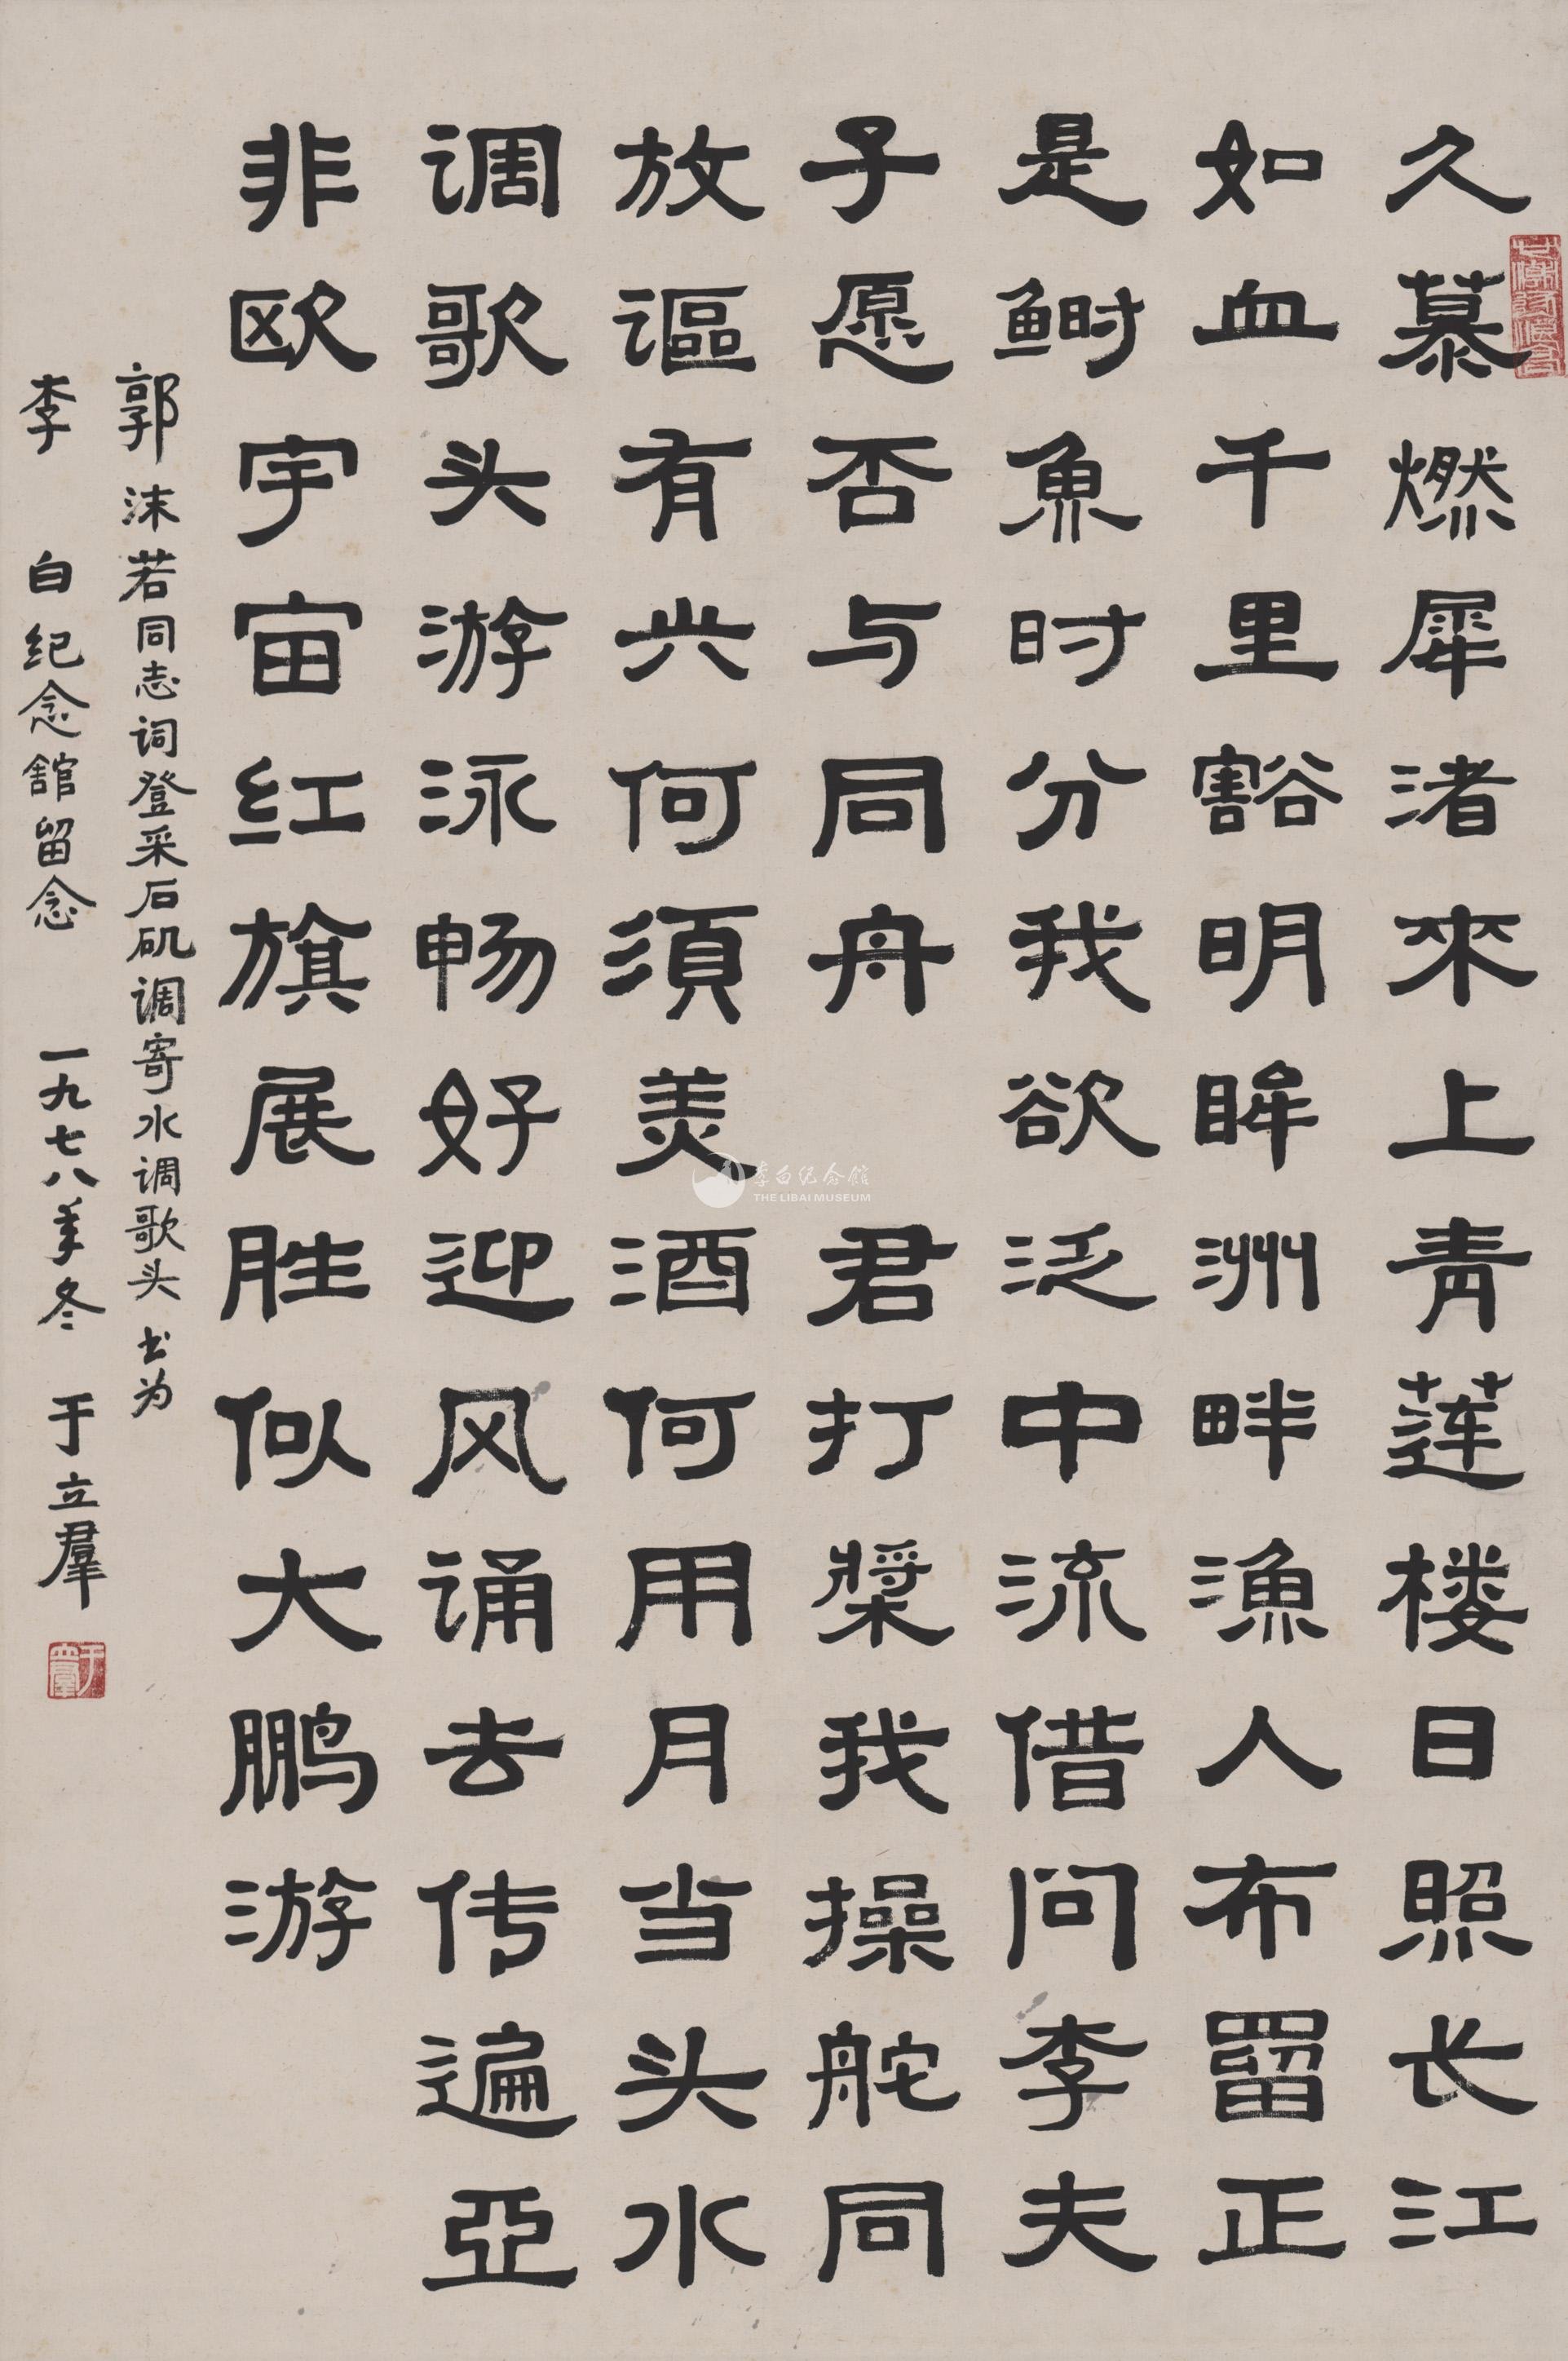 久慕燃犀渚來上青莲楼日照长江
如血千里豁明眸洲畔漁人布罶正
是鲥魚时分我欲泛中流借问李夫
子愿否与同舟 君打槳我操舵同
放謳有兴何須羨酒何用月当头水
调歌头游泳畅好迎风诵去传遍亞
非欧宇宙红旗展胜似大鹏游
郭沫若同志词登采石矶调寄水调歌头书为
李白纪念館留念 一九七八年冬 于立羣
于立羣
李白纪念馆
THE LIBAI MUSEUM